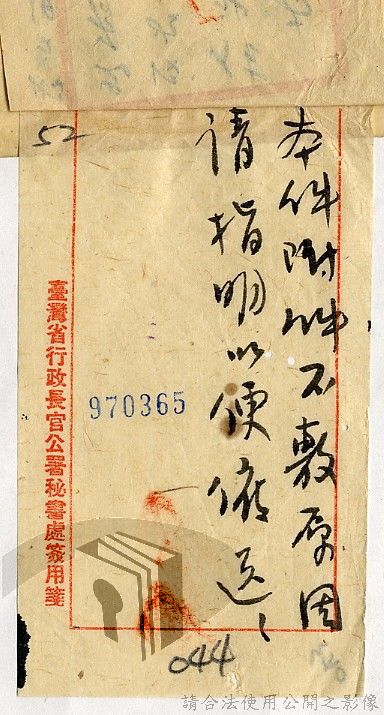 52
本件附件不敷原因
請指明以便催送
臺灣省行政長官公署秘書處簽用箋
970365
044
請合法使用公開之影像